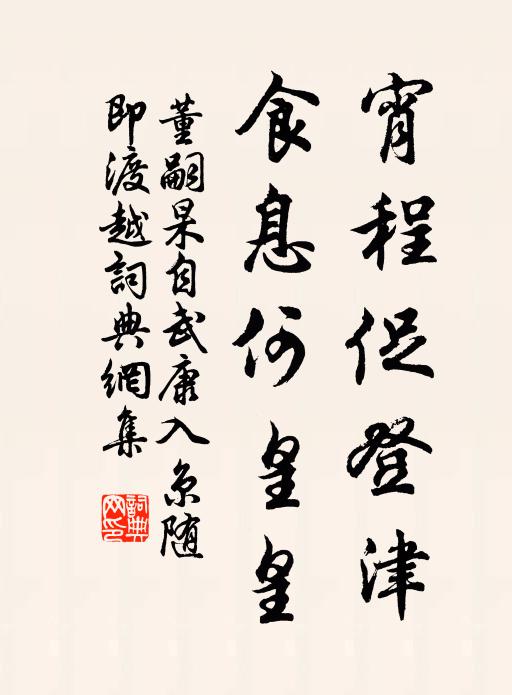 宵程促登津
食息何皇皇
董嗣杲自武康入京随
即渡越詞典網集
詞典网印